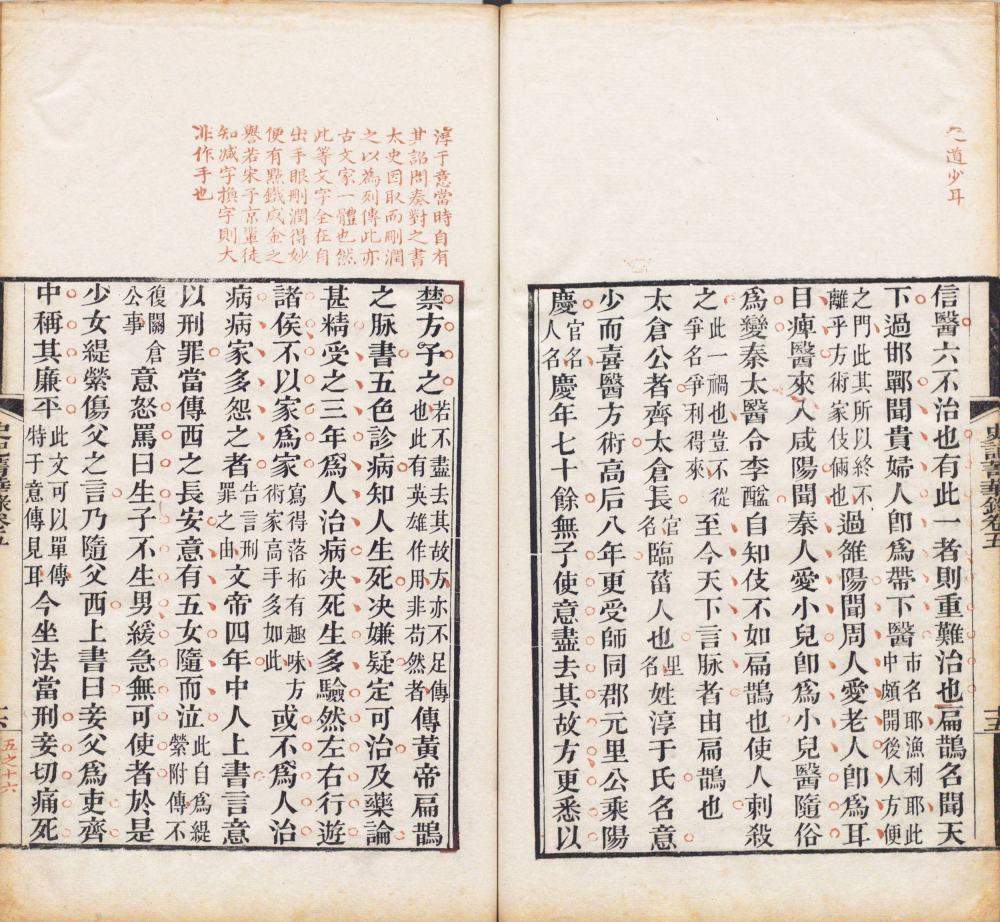 之道少耳
信醫六不治也有此一者則重難治也扁鵲名聞天
下過邯鄲聞貴婦人卽爲帶下醫市名耶漁利耶此中頗開後人方便
之門此其所以終不離乎方術家伎倆也過雒陽聞周人愛老人卽爲耳
目痺醫來入咸陽聞秦人愛小兒卽爲小兒醫隨俗
爲變秦太醫令李醯自知伎不如扁鵲也使人刺殺
之此一禍也豈不從爭名爭利得來至今天下言脉者由扁鵲也
太倉公者齊太倉長官名臨菑人也里名姓淳于氏名意
少而喜醫方術高后八年更受師同郡元里公乘陽
慶官名人名慶年七十餘無子使意盡去其故方更悉以
史記菁華錄卷五
十五
淳于意當時自有
其詔問奏對之書
太史因取而刪潤
之以為列傳此亦
古文家一體也然
此等文字全在自
出手眼刪潤得妙
便有點鐵成金之
譽若宋子京輩徒
知減字換字則大
非作手也
禁方予之若不盡去其故方亦不足傳也此有英雄作用非苟然者傳黃帝扁鵲
之脉書五色診病知人生死决嫌疑定可治及藥論
甚精受之三年爲人治病决死生多驗然左右行遊
諸侯不以家爲家寫得落拓有趣味方術家高手多如此或不爲人治
病病家多怨之者告言刑罪之由文帝四年中人上書言意
以刑罪當傳西之長安意有五女隨而泣此自爲緹縈附傳不
復關倉公事意怒罵曰生子不生男緩急無可使者於是
少女緹縈傷父之言乃隨父西上書曰妾父爲吏齊
中稱其廉平此文可以單傳特于意傳見耳今坐法當刑妾切痛死
史記菁華錄卷五
十六
五之十六